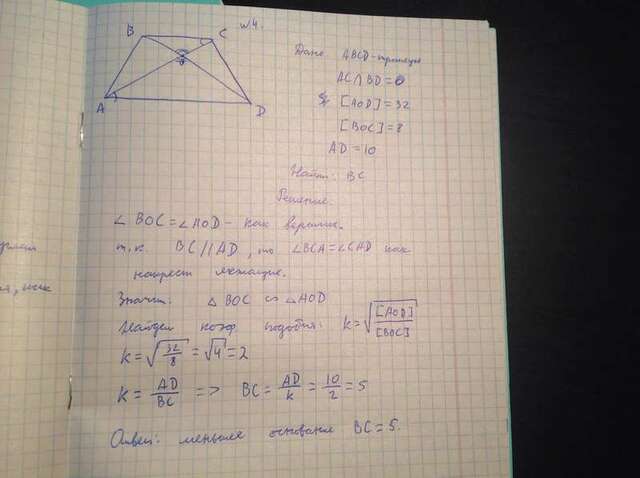 №4.
B
C
O
A
D
Дано: ABCD-трапеция
AC∩BD=O
[AOD]=32
[BOC]=8
AD=10
Найти: BC
Решение.
∠BOC=∠AOD - как вертик.
т.к. BC||AD, то ∠BCA=∠CAD как
накрест лежащие.
Значит: △BOC ∽ △AOD
Найдем коэф подобия: k=√[AOD]/[BOC]
k=√32/8=√4=2
k=AD/BC => BC=AD/k=10/2=5
Ответ: меньшее основание BC=5.